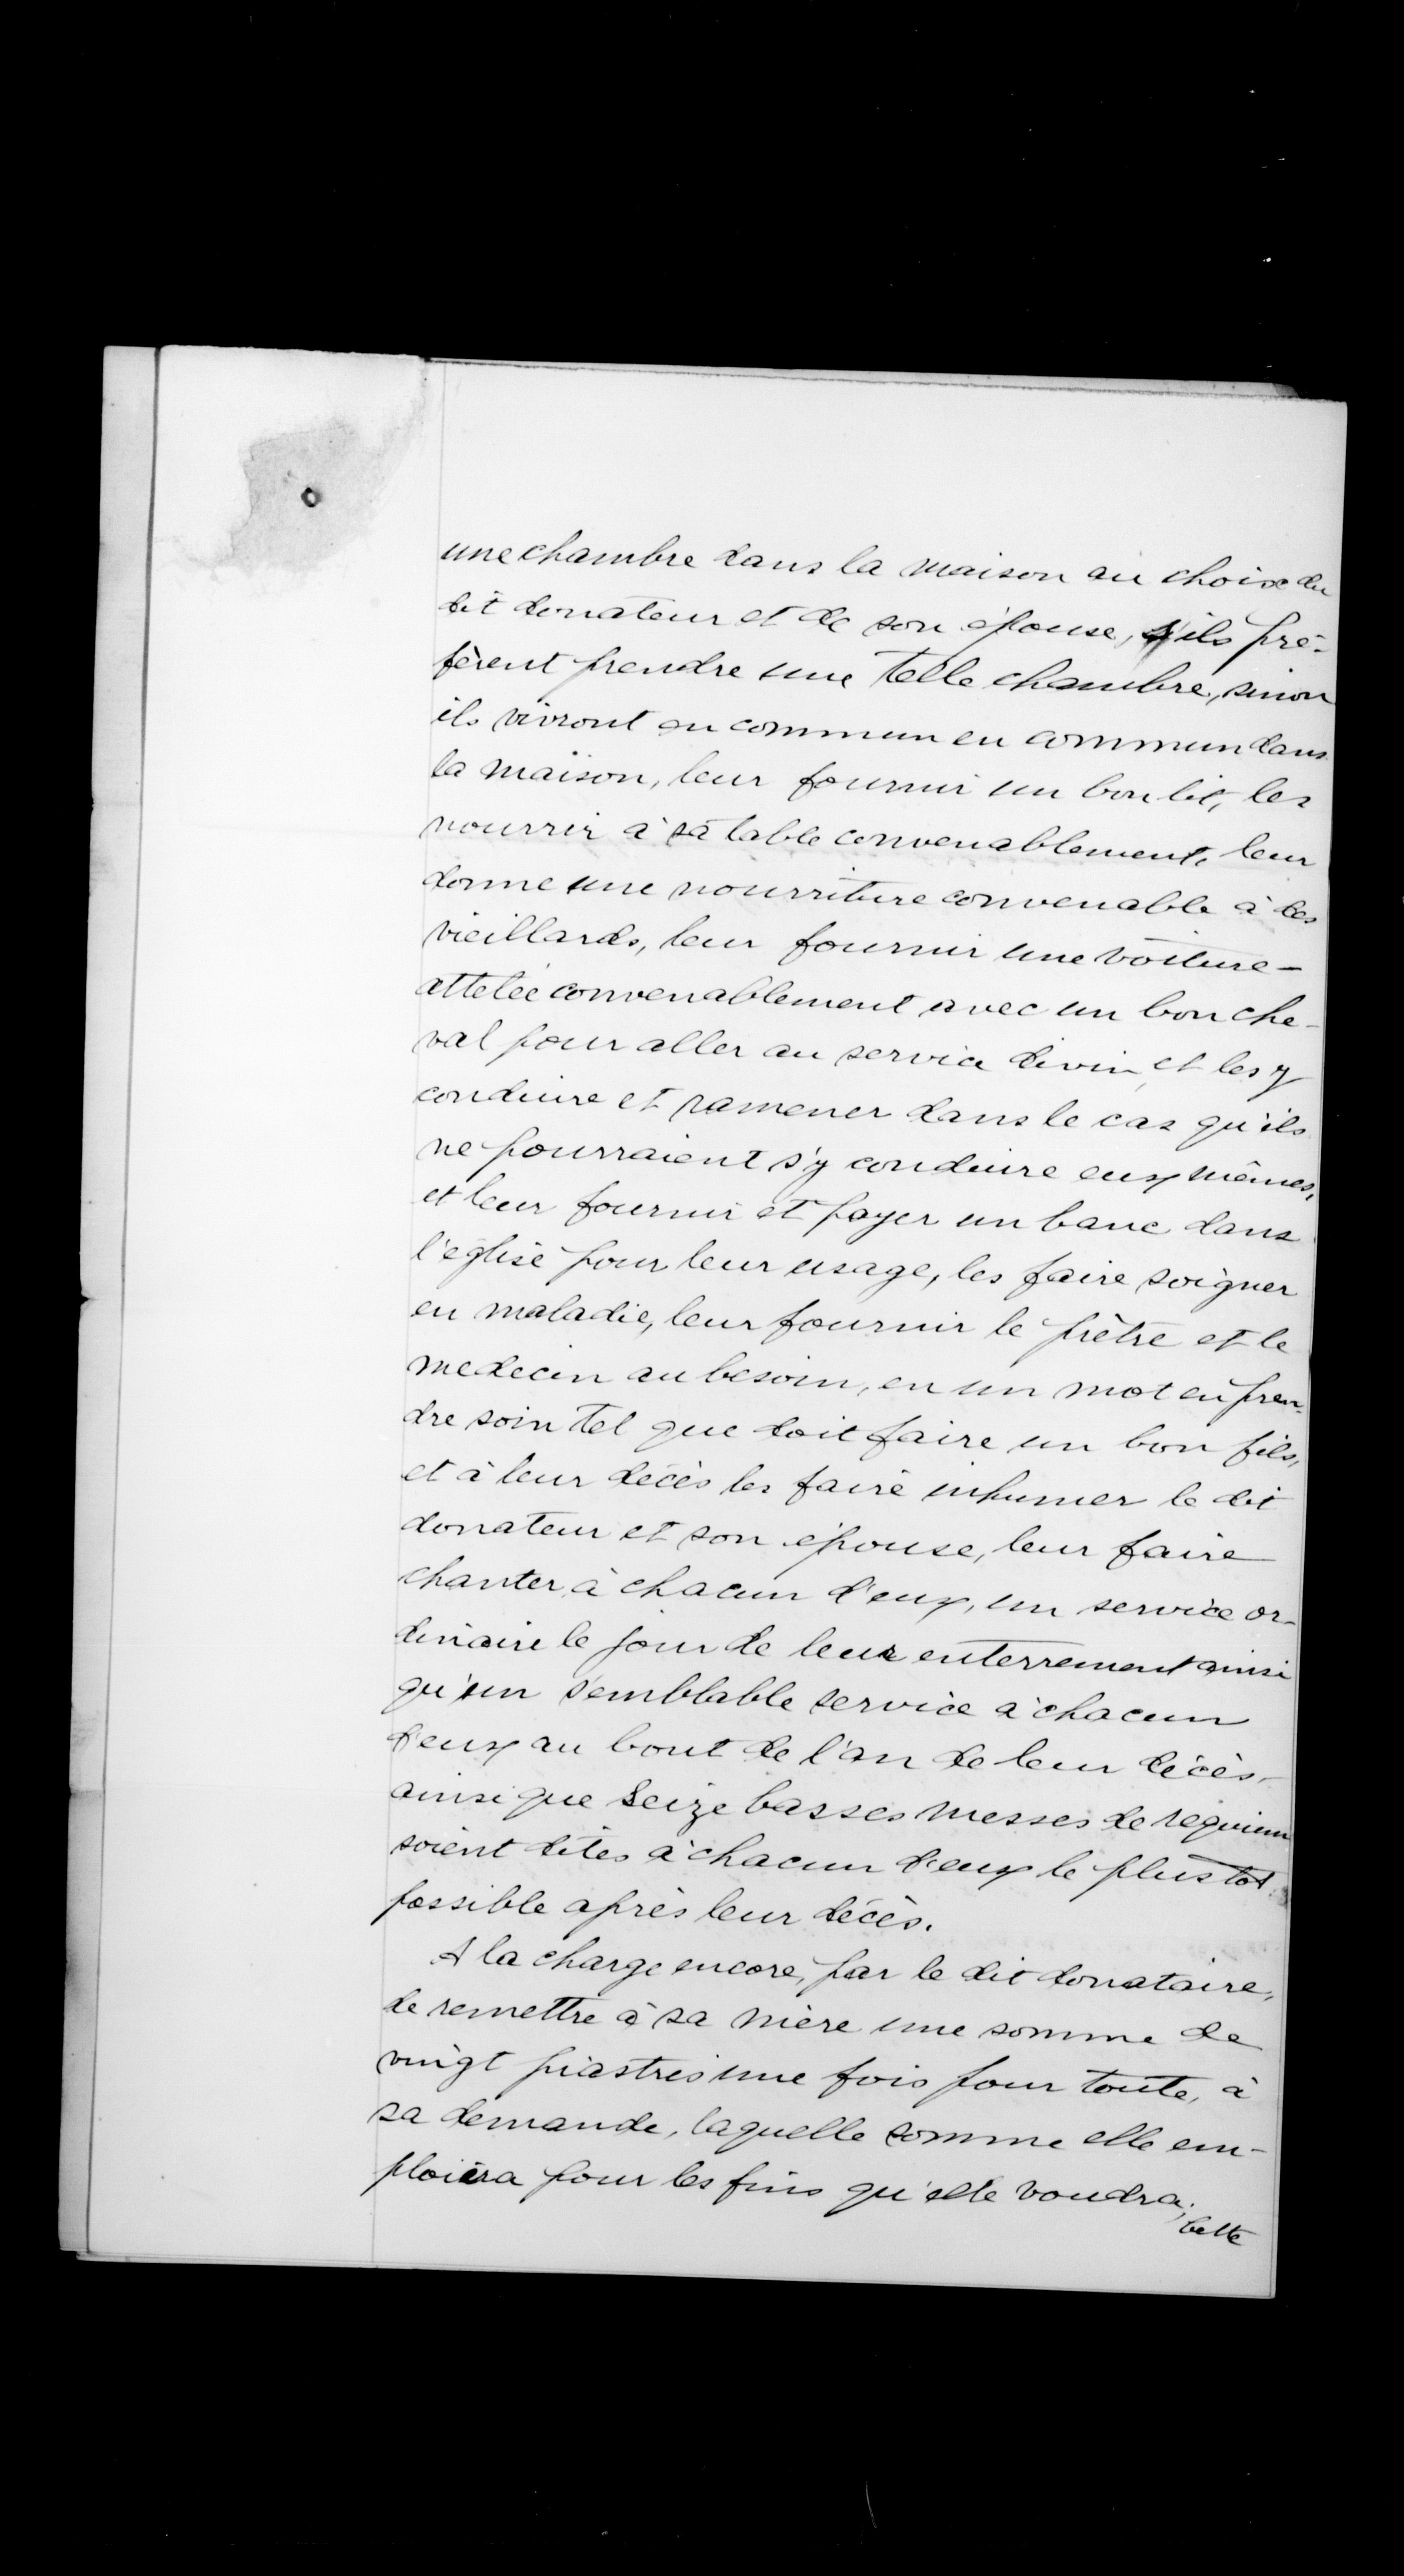 une chambre dans la maison au choix du
dit donateur et de son épouse, s'ils pré-
fèrent prendre une telle chambre, sinon
ils vivront en commun en commun dans
la maison, leur fournir un bon lit, les
nourrir à sa table convenablement, leur
donne une nourriture convenable à des
vieillards, leur fournir une voiture -
attelée convenablement avec un bon che-
val pour aller au service divin et les y
conduire et ramener dans le cas qu'ils
ne pourraient s'y conduire eux mêmes,
et leur fournir et payer un banc dans
l'église pour leur usage, les faire soigner
en maladie, leur fournir le prêtre et le
medecin au besoin, en un mot en pren-
dre soin tel que doit faire un bon fils,
et à leur décès les faire inhumer le dit
donateur et son épouse, leur faire
chanter à chacun d'eux, un service or-
dinaire le jour de leur enterrement ainsi
qu'un semblable service à chacun
d'eux au bout de l'an de leur décès,
ainsi que seize basses messes de requiem
soient dites à chacun d'eux le plus tot
possible après leur décès.
A la charge encore, par le dit donataire,
de remettre à sa mère une somme de
vingt piastres une fois pour toute, à
sa demande, laquelle somme elle em-
ploiera pour les fins qu'elle voudra;
Cette